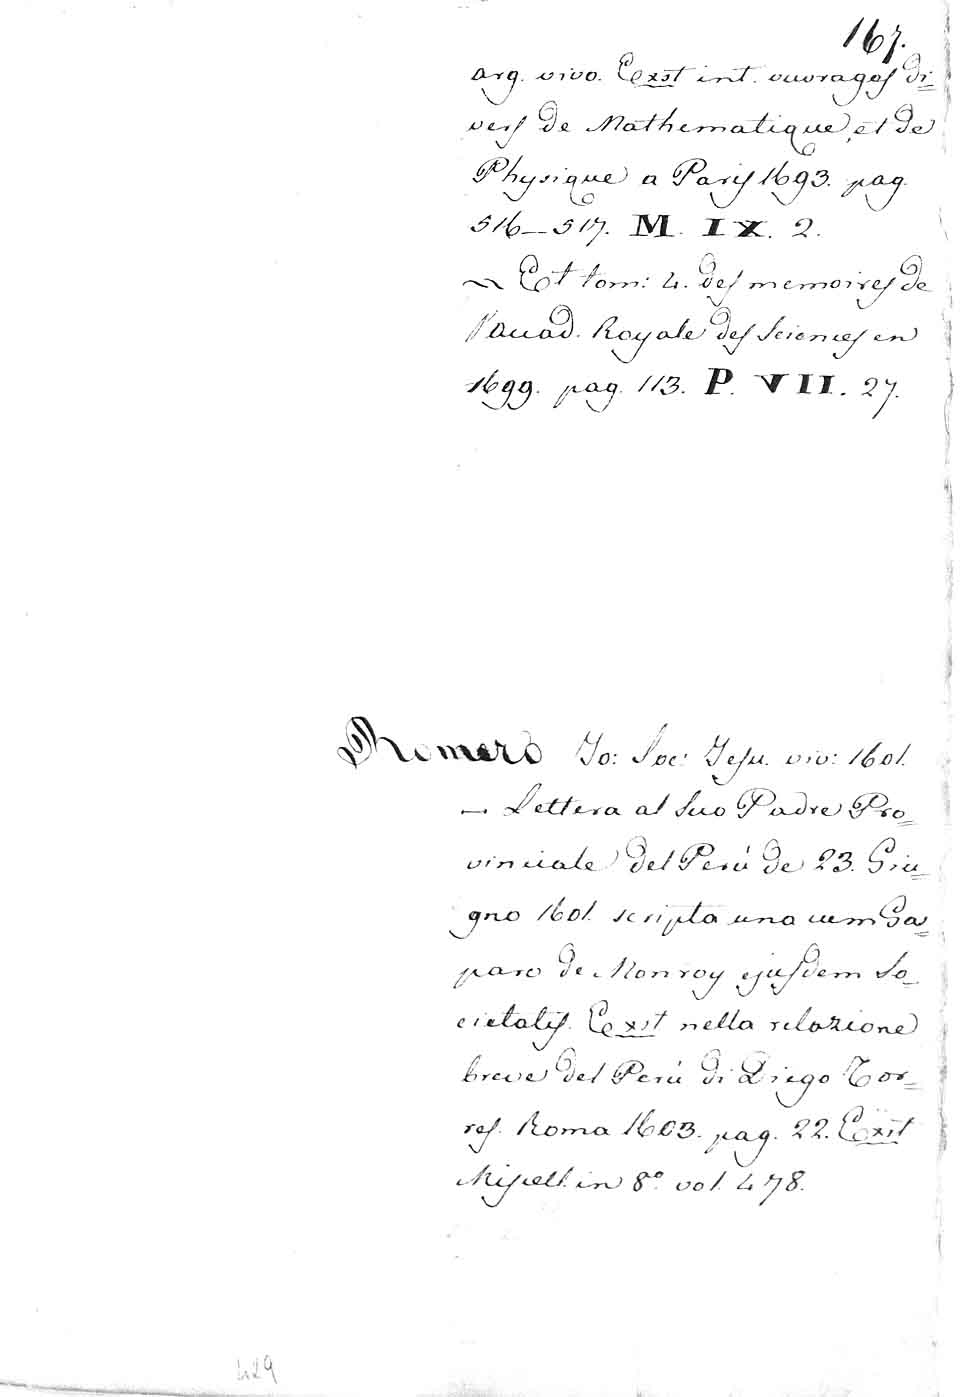 167.
arg. vivo. Exst int. ouvrages di=
vers de Mathematique, et de
Physique a Paris 1693. pag.
516—517. M. IX. 2.
~ Et tom: 4. des memoires de
l'accad. Royale des Sciences en
1699. pag. 113. P. VII. 27.
Romero Jo: Soc: Jesu. viv: 1601.
— Lettera al suo Padre Pro=
vinciale del Perú de 23. Giu=
gno 1601. scripta una cum Ga=
paro de Monroy ejusdem So=
cietatis. Exst nella relazione
breve del Perú di Diego Tor=
res. Roma 1603. pag. 22. Exit
Miscell. in 8º vol. 478.
429